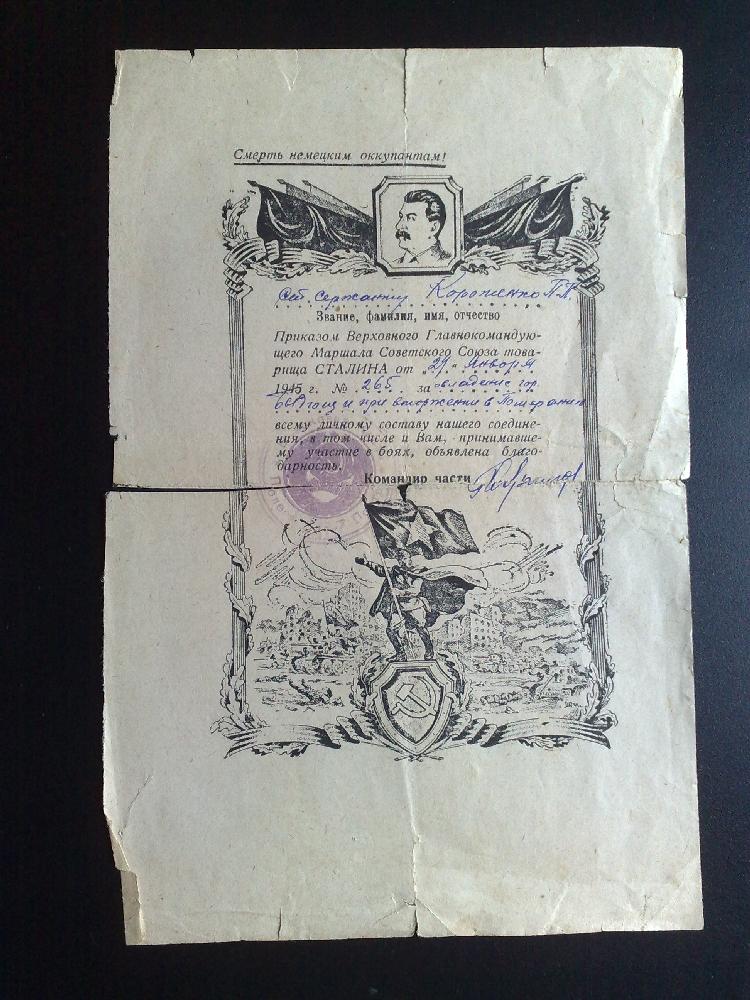 Смерть немецким оккупантам!
Сет. сержанту Короженко П.П.
Звание, фамилия, имя, отчество
Приказом Верховного Главнокомандую-
щего Маршала Советского Союза това-
рища СТАЛИНА от „29“ января
1945 г. № 265 за овладение гор.
и при вторжении в Померанию
всему личному составу нашего соедине-
ния, в том числе и Вам, принимавше-
му участие в боях, объявлена благо-
дарность.
Командир части